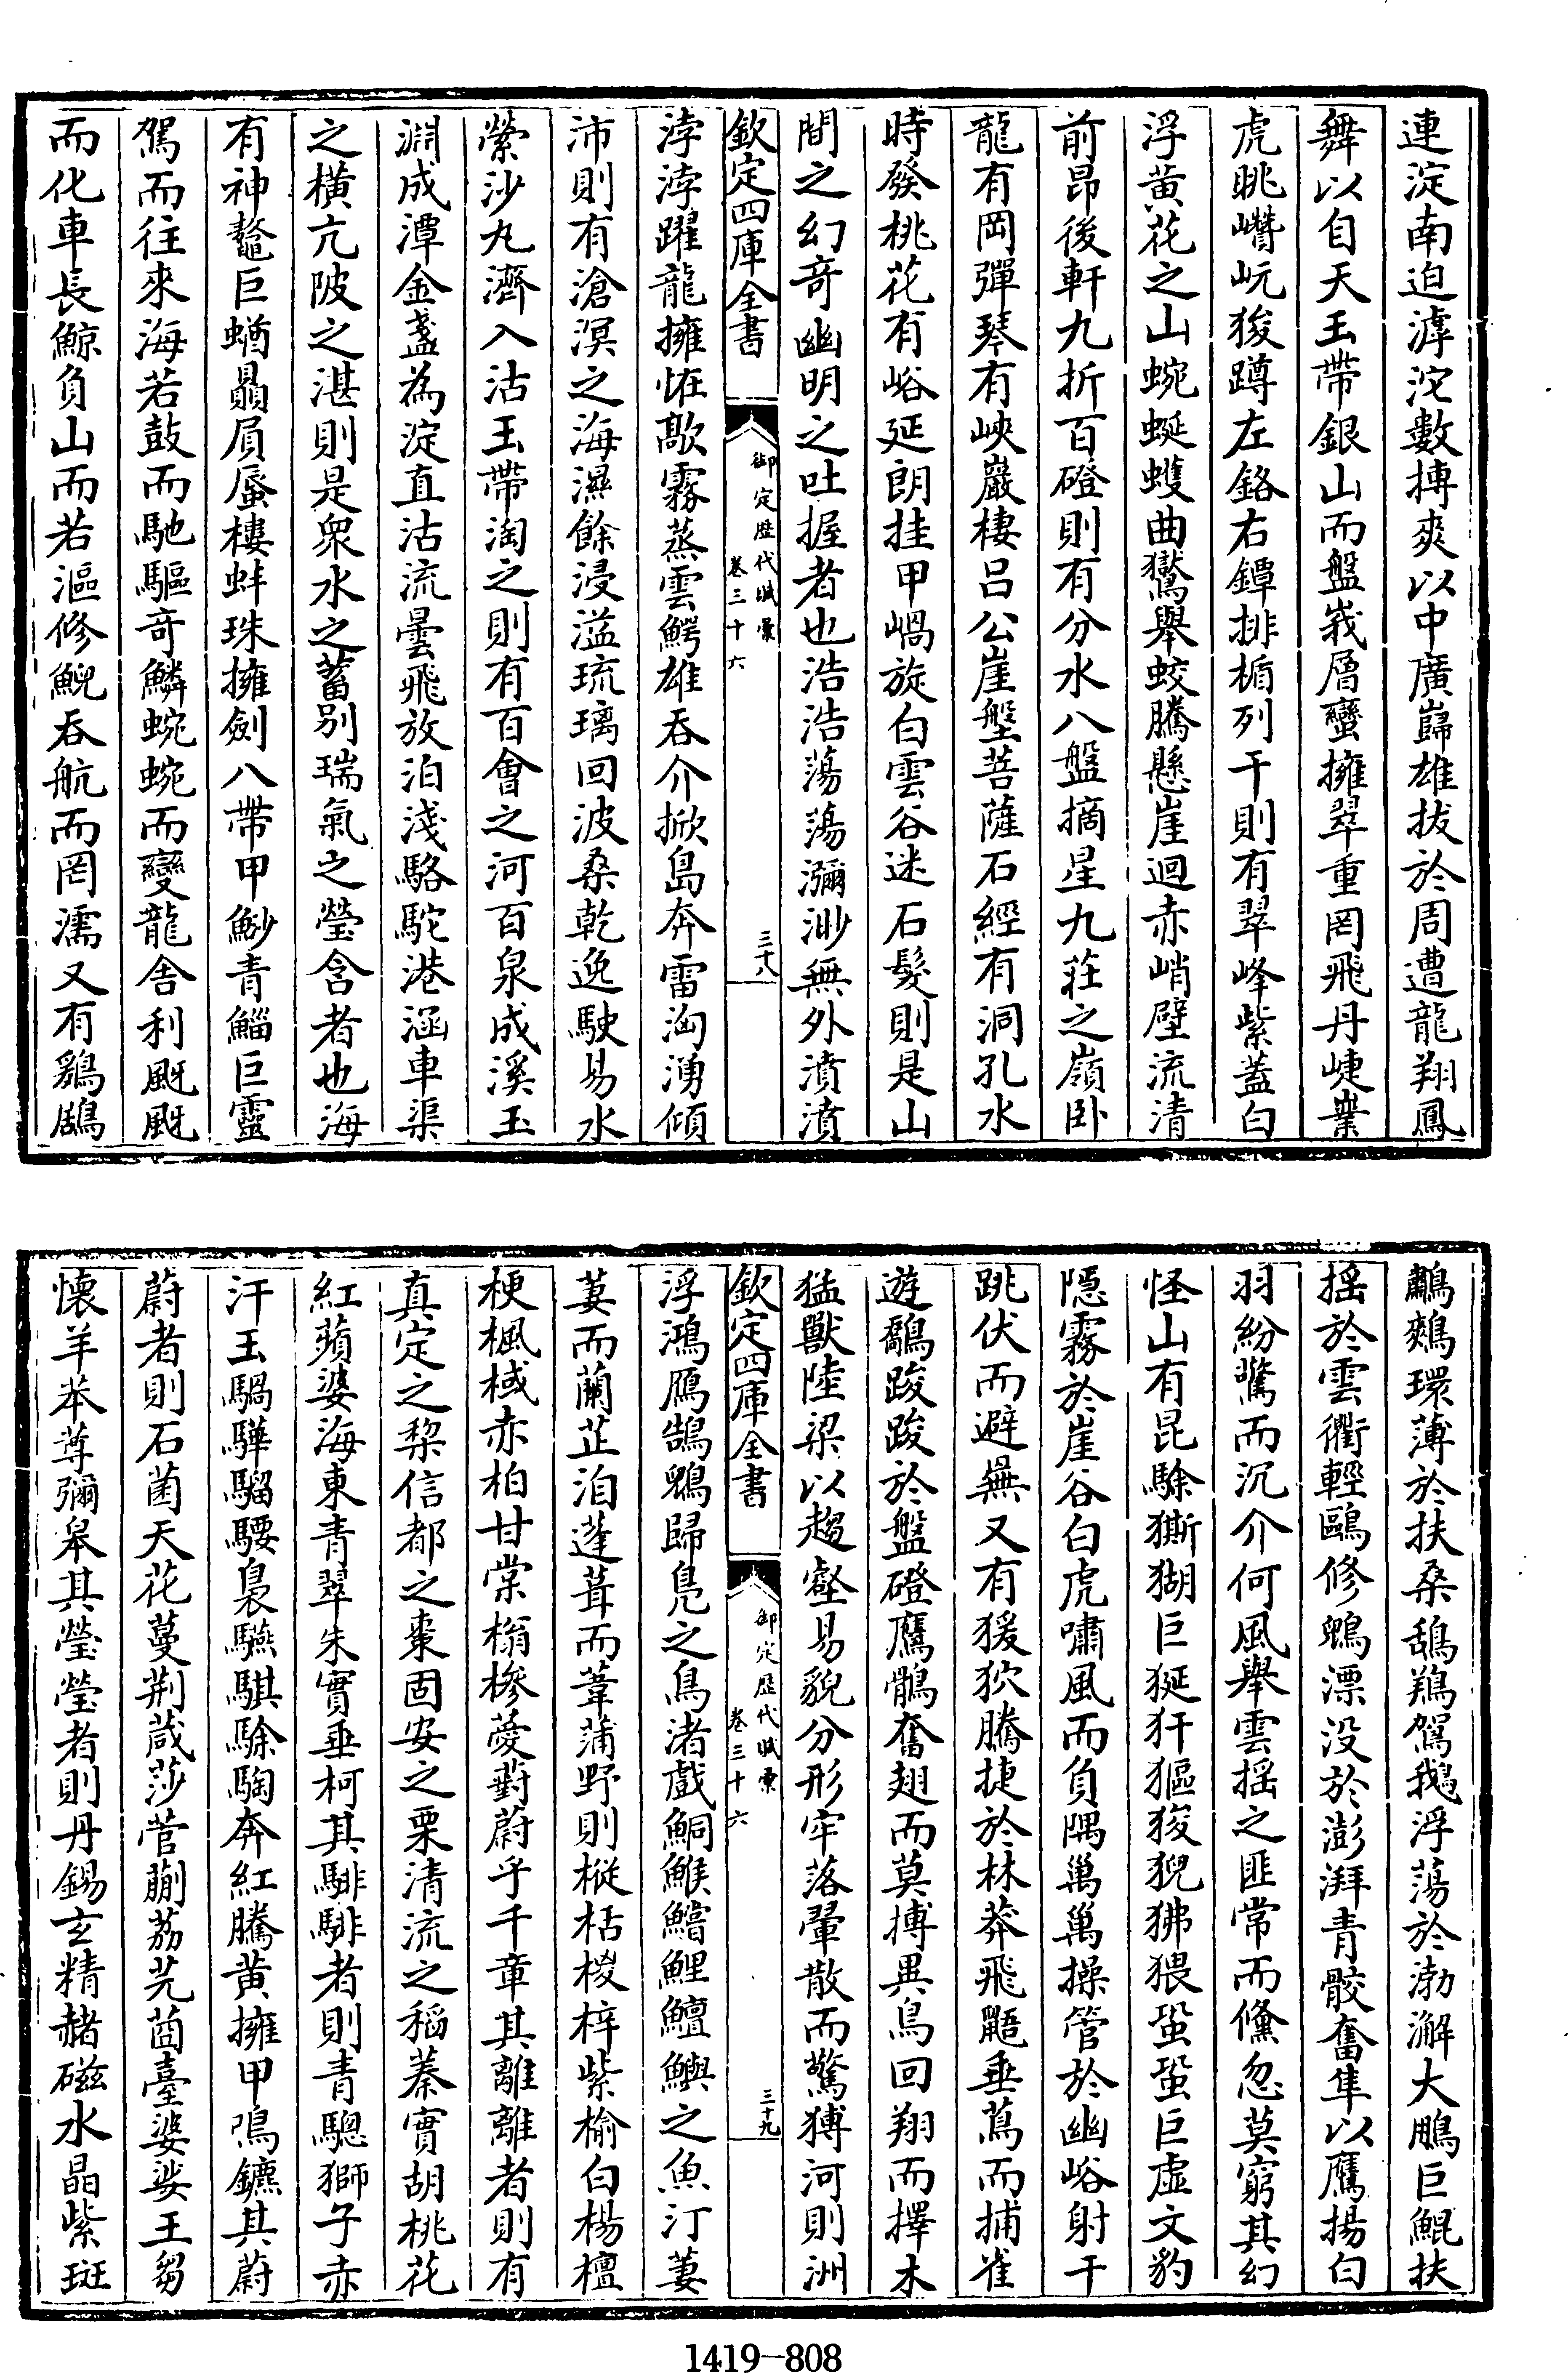 連淀南迫滹沱數摶爽以中廣巋雄拔於周遭龍翔鳳
舞以自天玉帶銀山而盤峩層巒擁翠重岡飛丹崨嶪
虎眺巑岏狻蹲左鉻右鐔排楯列干則有翠峰紫蓋白
浮黄花之山蜿蜒蠖曲鸑舉蛟騰懸崖迴赤峭壁流清
前昂後軒九折百磴則有分水八盤摘星九莊之嶺卧
龍有岡彈琴有峽巖棲呂公崖壂菩薩石經有洞孔水
時發桃花有峪延朗挂甲㟮旋白雲谷迷石髮則是山
間之幻竒幽明之吐握者也浩浩蕩蕩瀰渺無外濆濆
欽定四庫全書
御定歷代賦彚
卷三十六
三十八
浡浡躍龍擁恠歊霧蒸雲鰐雄吞介掀島奔雷洶湧傾
沛則有滄溟之海濕餘浸溢琉璃回波桑乾逸駛易水
縈沙九濟入沽玉帶淘之則有百會之河百泉成溪玉
淵成潭金盞為淀直沽流曇飛放泊淺駱駝港涵車渠
之橫亢陂之湛則是衆水之蓄别瑞氣之瑩含者也海
有神鼇巨蝤贔屓蜃樓蚌珠擁劍八帶甲魦青鯔巨靈
駕而往來海若鼓而馳驅竒鱗蜿蜿而變龍舎利颬颬
而化車長鯨負山而若漚修鯢吞航而罔濡又有鷄鶋
鸕鷀環薄於扶桑鴰鷄駕鵝浮蕩於渤澥大鵬巨鯤扶
揺於雲衢輕鷗修鶂漂没於澎湃青骹奮隼以鷹揚白
羽紛驚而沉介何風舉雲揺之匪常而儵忽莫窮其幻
怪山有昆駼獑猢巨狿犴貙狻猊狒猥蛩蛩巨虛文豹
隱霧於崖谷白虎嘯風而負隅萬萬操管於幽峪射干
跳伏而避藂又有猨狖騰捷於林莽飛鼯垂蔦而捕雀
遊鷸踆踆於盤磴鷹鶻奮翅而莫搏異鳥回翔而擇木
猛獸陸梁以趨壑易貌分形牢落翬散而驚獋河則洲
欽定四庫全書
御定歷代賦彚
卷三十六
三十九
浮鴻鴈鵠鶂歸鳧之鳥渚戲鮦鯸鱨鯉鱣鱮之魚汀蔞
蔞而蘭芷洎蓬葺而葦蒲野則樅栝椶梓紫榆白楊檀
梗楓棫赤柏甘棠榾槮薆薱蔚乎千章其離離者則有
真定之棃信都之棗固安之栗清流之稻蓁實胡桃花
紅蘋婆海東青翠朱實垂柯其騑騑者則青驄獅子赤
汗玉騧驊騮騕褭驠騏駼騊奔紅騰黄擁甲鳴鑣其蔚
蔚者則石菌天花蔓荆葴莎菅蒯荔芫茵臺婆娑王芻
懷羊苯䔿彌皋其瑩瑩者則丹錫玄精赭磁水晶紫斑
1419—808